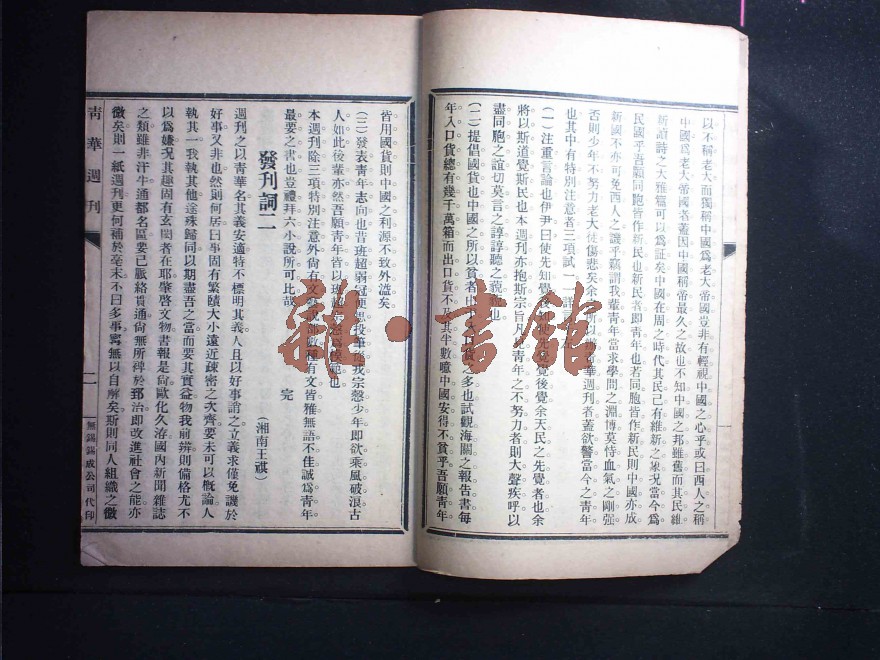 以不稱老大而獨稱中國爲老大帝國豈非有輕視中國之心乎或曰西人之稱
中國爲老大帝國者蓋因中國稱帝最久之故也不知中國之邦雖舊而其民維
新讀詩之大雅篇可以爲証矣中國在周之時代其民已有維新之象況當今爲
民國乎吾願同胞皆作新民也新民者即靑年也若同胞皆作新民則中國亦成
新國不亦可免西人之譏乎竊謂我輩靑年當求學問之淵博莫恃血氣之剛强
否則少年不努力老大徒傷悲矣余之所以 華週刊者蓋欲警當今之靑年
也其中有特別注意者三項試一一詳
(一)注重言論也伊尹曰使先知覺後 使先覺覺後覺余天民之先覺者也余
將以斯道覺斯民也本週刊亦抱斯宗旨凡見靑年之不努力者則大聲疾呼以
盡同胞之誼切莫言之諄諄聽之藐 也
(二)提倡國貨也中國之所以貧者 入口貨之多也試觀海關之報告書每
年入口貨總有幾千萬箱而出口貨不及其半數噫中國安得不貧乎吾願靑年
皆用國貨則中國之利源不致外溢矣
(三)發表靑年志向也昔班超弱冠便 投筆 戎宗慤少年即欲乘風破浪古
人如此後輩亦然吾願靑年皆以班超 慤爲模範也
本週刊除三項特別注意外尙有文 說部數種有文皆雅無語不佳誠爲靑年
最要之書也豈禮拜六小說所可比哉 完
發刊詞二
(湘南王祺)
週刊之以靑華名其義安適特不標明其義人且以好事誚之立義求僅免譏於
好事又非也然則何居曰事固有繁賾大小遠近疎密之夾齊要未可以槪論人
執其一我執其他途殊歸同以期盡吾之當而要其實益物我前辨則備格尤不
以爲嫌況其趣固有玄閎者在耶肇啓文物書報是尙歐化久洽國內新聞雜誌
之類雖非汗牛通都名區要已脈絡貫通尙無所裨於郅治即改進社會之能亦
微矣則一紙週刊更何補於毫末不曰多事寗無以自解矣斯則同人組織之微
靑華週刊
二
無錫錫成公司代印
新·書館